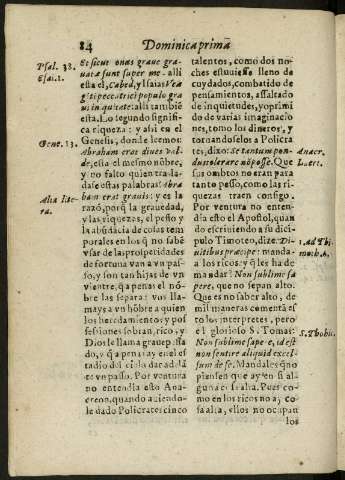 84 Dominica prima
Psal. 38.
Esai. 1.
Et sicut onus graue gra-
uatæ sunt super me. alli
esta el, Cabed, y Isaias Væ
gẽti peccatrici populo gra
ui iniquitate: alli tambiẽ
esta. Lo segundo signifi
ca riqueza: y assi en el
Genesis, donde leemos:
Gene. 13.
Abraham erat diues val-
de, esta el mesmo nõbre,
y no falto quien trasla-
dase estas palabras: Abra
ham erat grauis: y es la
Alia lite
ra.
razõ, porq̃ la grauedad,
y las riquezas, el pesso y
la abũdácia de cosas tem
porales en los q̃ no sabẽ
vsar de las prosperidades
de fortuna van a vn pas-
so, y son tan hijas de vn
vientre, q̃ a penas el nõm
bre las separa: vos lla-
mays a vn hõbre a quien
los heredamientos y pos
sessiones sobran, rico, y
Dios le llama graue, pssa
do, y q̃ a penas ay en el es
tadio del cielo dar adelã
te vn passo. Por ventura
no entendia esto Ana-
creon, quando auiendo-
le dado Policrates cinco
talentos, como dos no-
ches estuuiesse lleno de
cuydados, combatido de
pensamientos, assaltado
de inquietudes, y oprimi
do de varias imaginacio
nes, tomo los dineros, y
tornandoselos a Policra
tes, dixo: Se tantum pon-
Anacr.
Laert.
dus tolerare nõ posse. Que
sus ombros no eran para
tanto pesso, como las ri-
quezas traen consigo.
Por ventura no enten-
dia esto el Apostol, quan
do escriuiendo a su dici-
pulo Timoteo, dize. Di-
1. Ad Thi
moth. 6.
uitibus præcipe: manda-
a los ricos: y q̃ les ha de
mandar? Non sublime sa
pere, que no sepan alto.
Que es no saber alto, de
mil maneras comentã es
to los interpretes, pero
el glorioso S. Tomas:
S. Thoba.
Non sublime sapere, id est
non sentire aliquid excel-
sum de se. Mandales q̃ no
piensen que ay en si al-
guna cosa alta. Pues co-
mo en los ricos no ay co
sa alta, ellos no ocupan
los